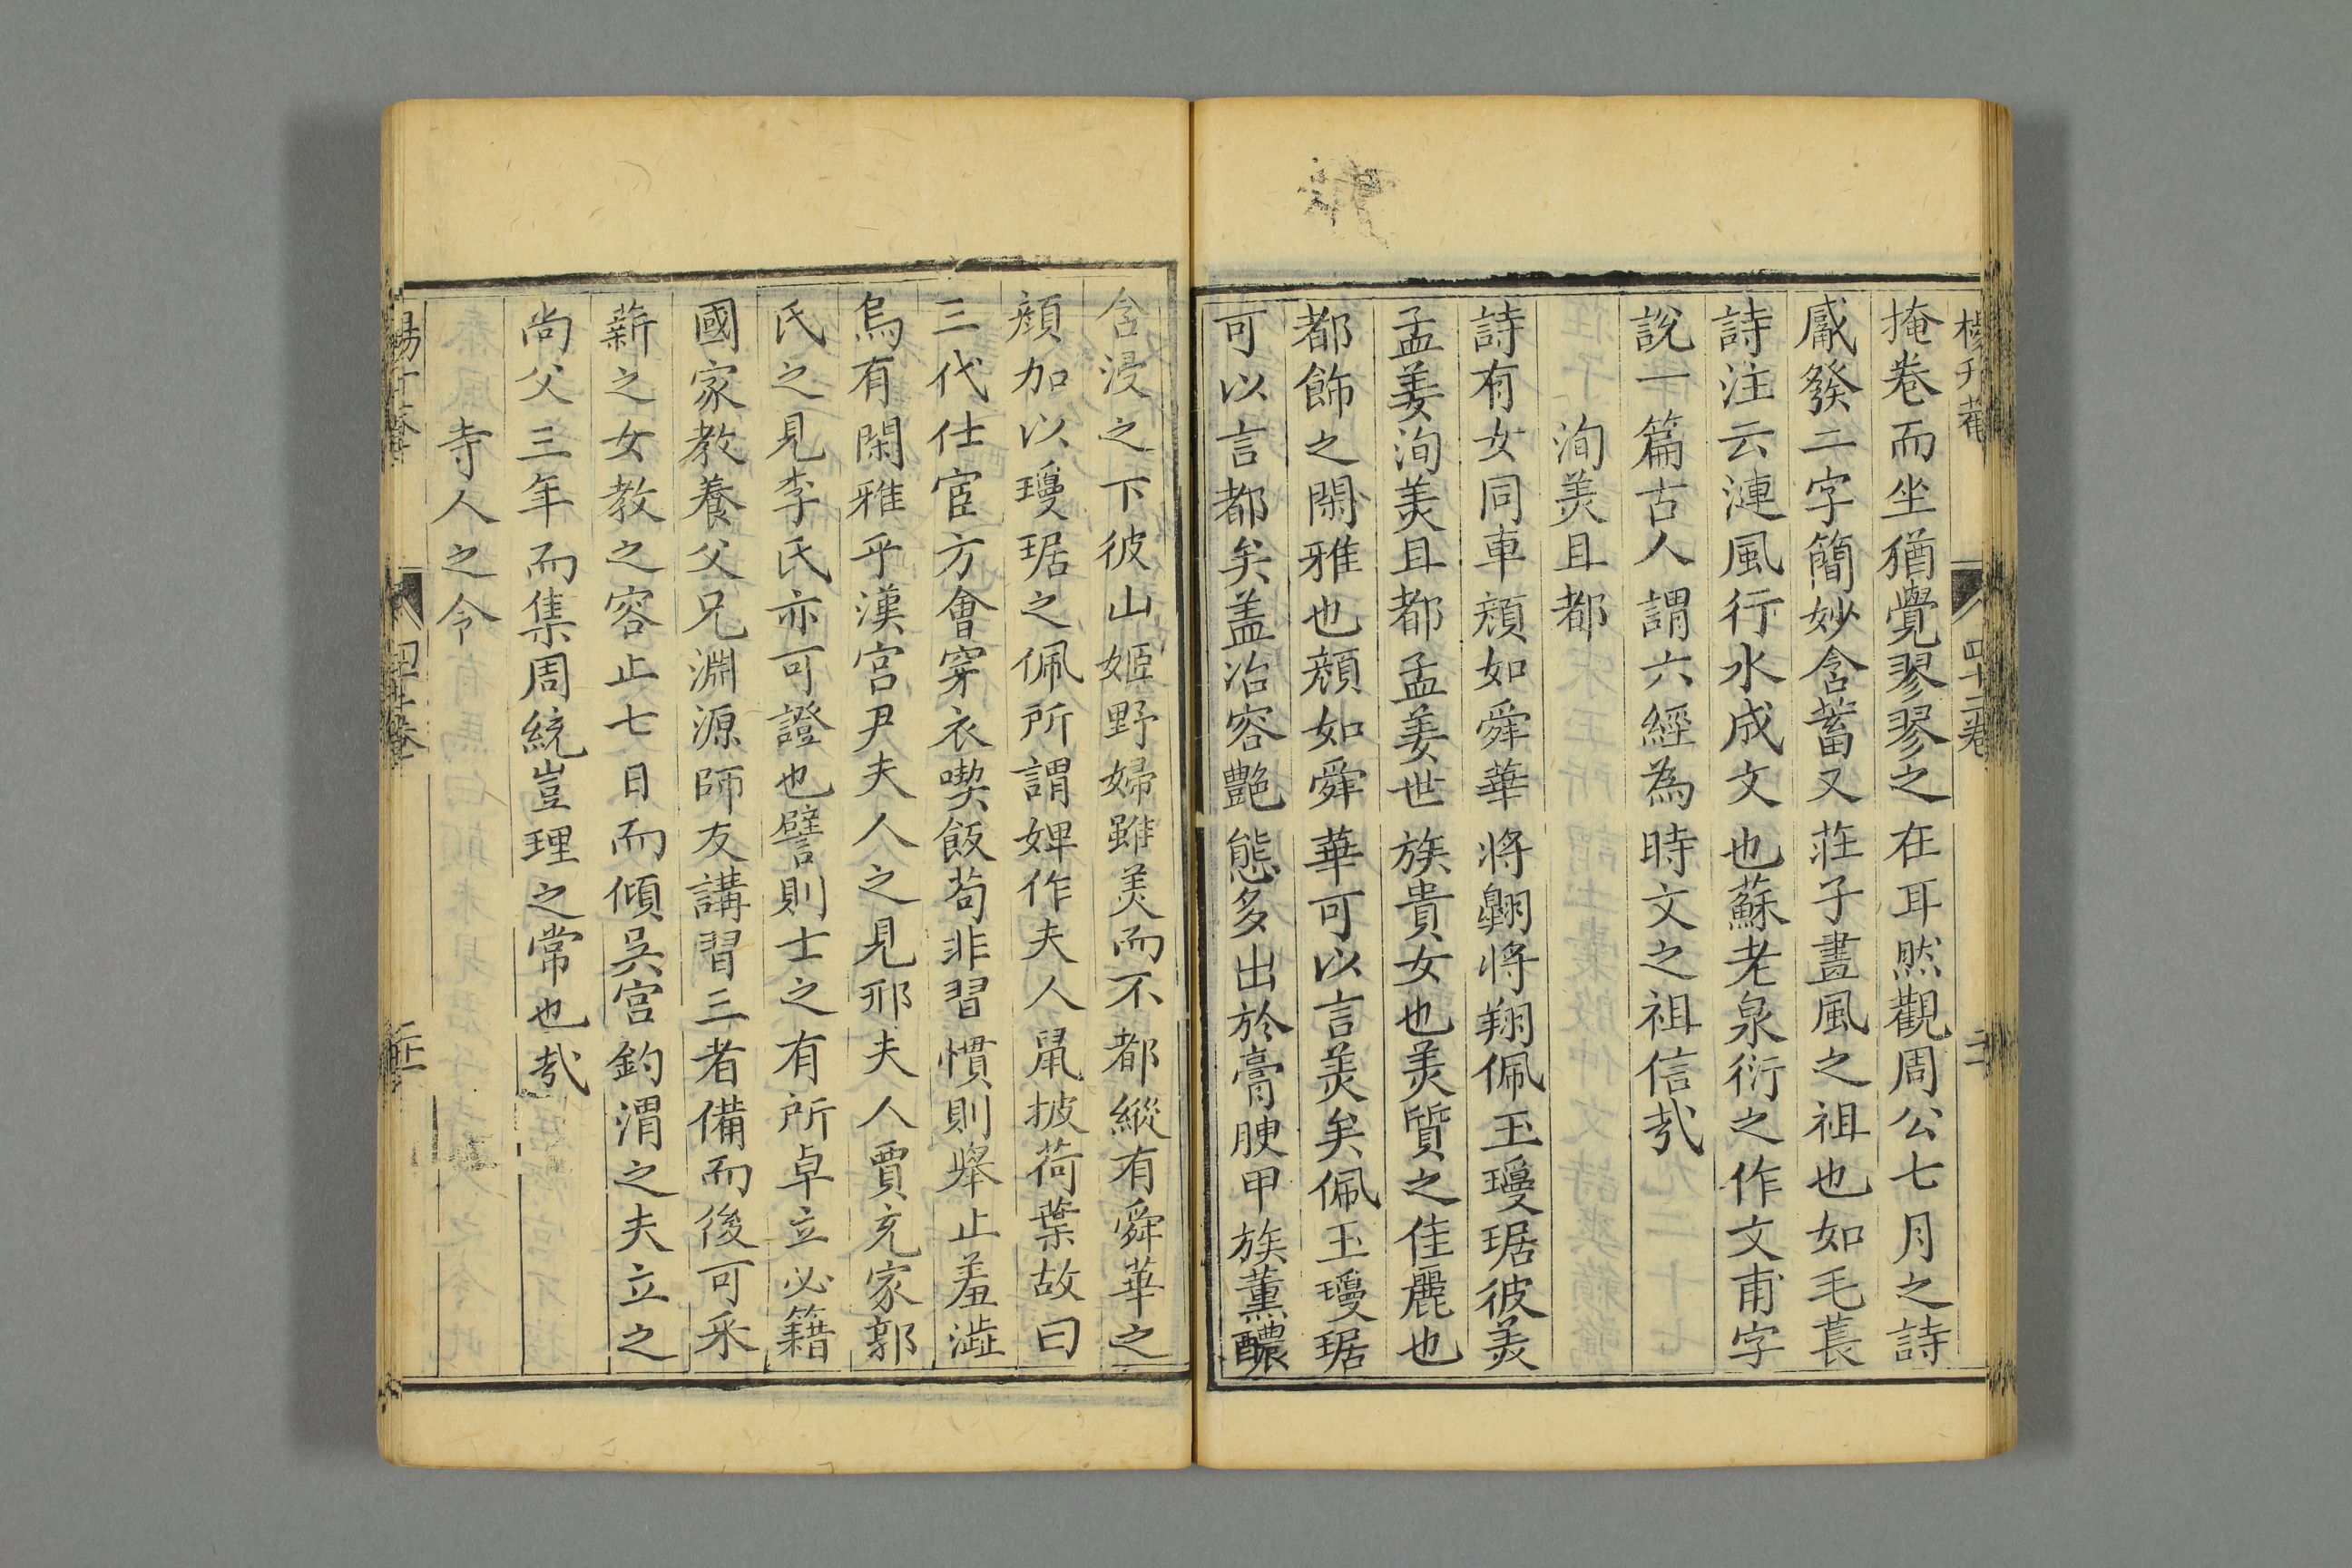 楊升菴
四十二卷
二
掩卷而坐猶覺翏翏之在耳然觀周公七月之詩
觱發二字簡妙含蓄又莊子畫風之祖也如毛萇
詩注云漣風行水成文也蘇老泉衍之作文甫字
說一篇古人謂六經為時文之祖信㦲
洵美且都
詩有女同車顏如舜華將翱將翔佩玉瓊琚彼美
孟姜洵美且都孟姜世族貴女也美質之佳麗也
都飾之閑雅也顏如舜華可以言美矣佩玉瓊琚
可以言都矣盖冶容艷態多出於膏腴甲族薰醲
含浸之下彼山姬野婦雖美而不都縱有舜華之
顏加以瓊琚之佩所謂婢作夫人鼠披荷葉故曰
三代仕宦方會穿衣喫飯苟非習慣則舉止羞澁
烏有閑雅乎漢宮尹夫人之見邢夫人賈充家郭
氏之見李氏亦可證也譬則士之有所卓立必籍
國家教養父兄淵源師友講習三者備而後可采
薪之女教之容止七日而傾吳宮釣渭之夫立之
尚父三年而集周統豈理之常也㦲
寺人之令